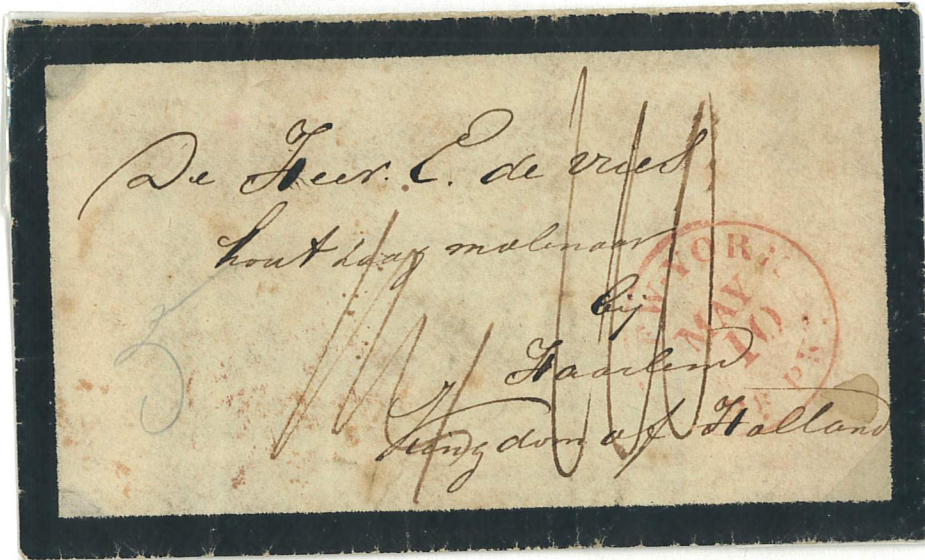 De Heer. E. de vries
hout zaag molenaar
bij
Haarlem
Kingdom of Holland
NEW YORK
MAY
10
3